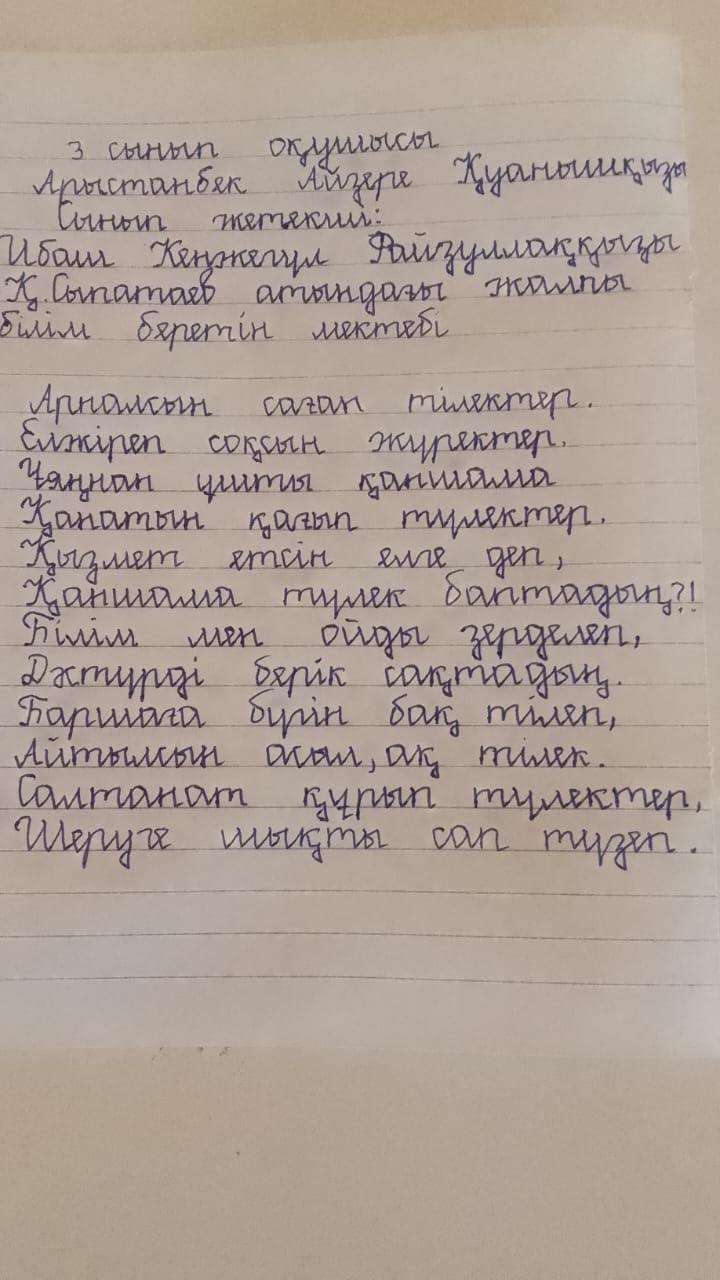 3 сынып оқушысы
Арыстанбек Айзере Қуанышқызы
Сынып жетекші:
Ибаш Кеңжегүл Файзуллаққызы
Қ.Сыпатаев атындағы жалпы
білім беретін мектебі
Арналсын саған тілектер.
Елжіреп соқсын жүректер.
Ұяңнан ұшты қаншама
Қанатын қағып түлектер.
Қызмет етсін елге деп,
Қаншама түлек баптадың?!
Білім мен ойды зерделеп,
Дәстүрді берік сақтадың.
Баршаға бүгін бақ тілеп,
Айтылсын асыл, ақ тілек.
Салтанат құрып түлектер,
Шеруге шықты сап түзеп.